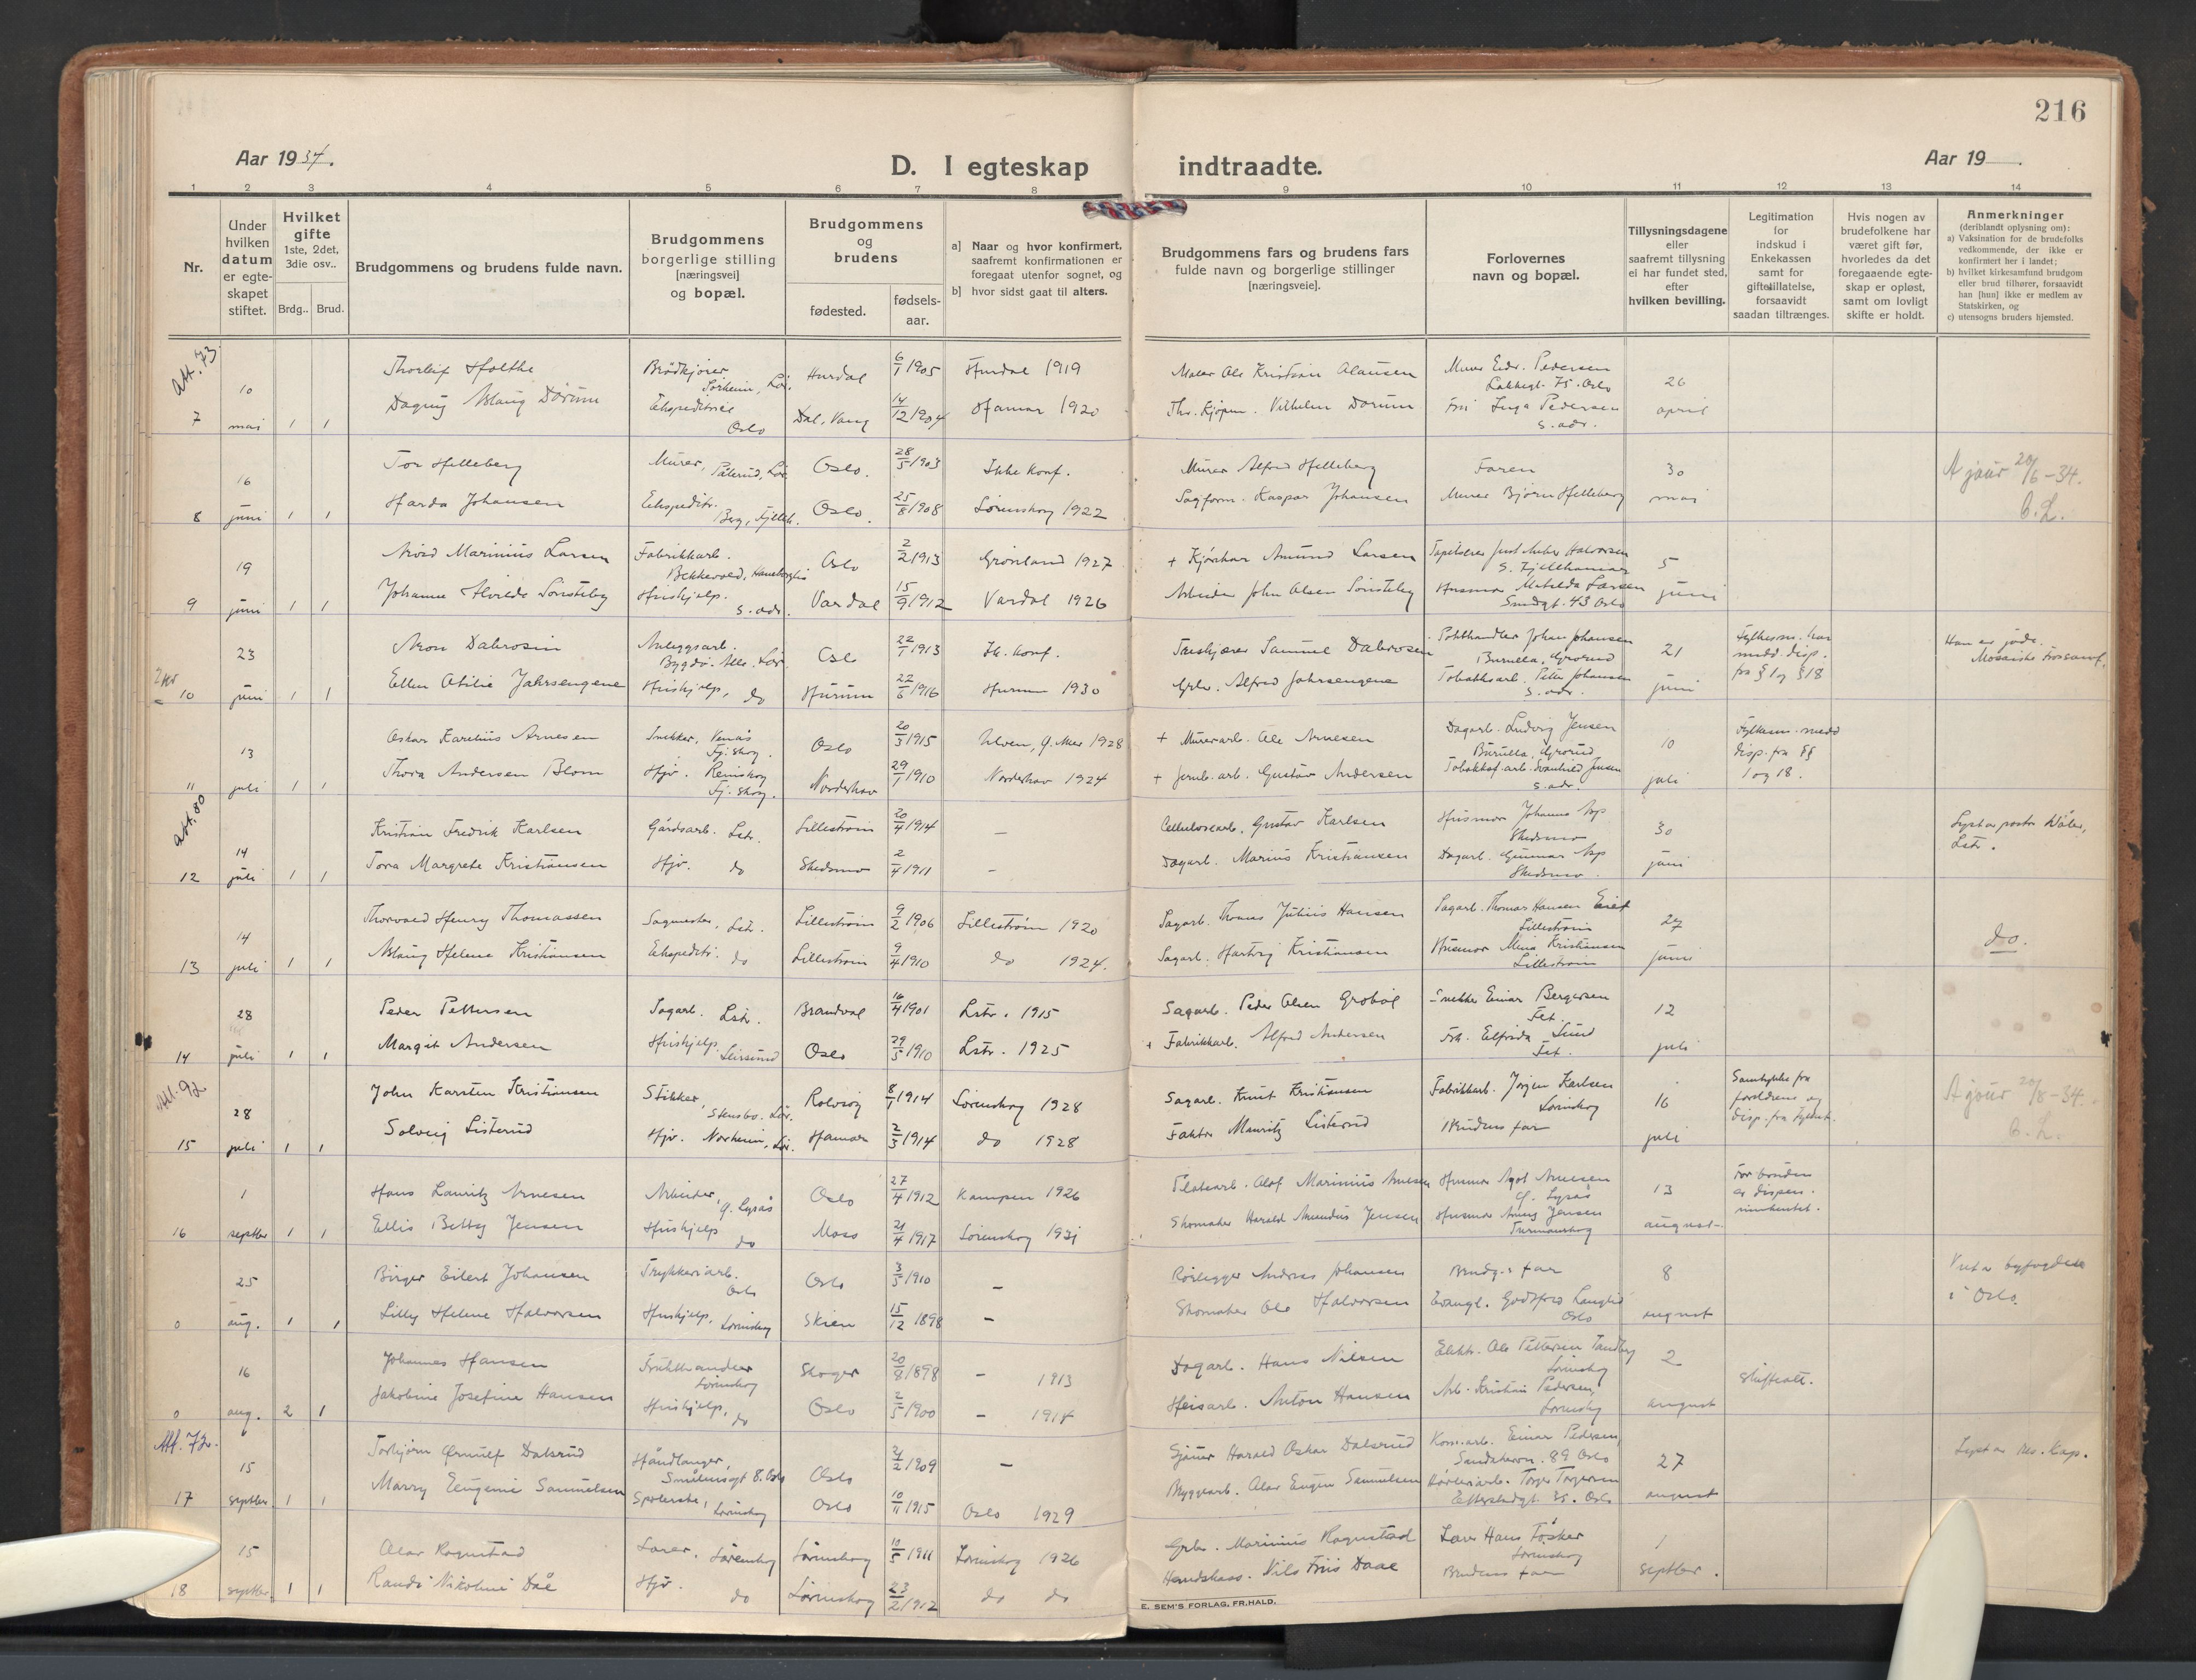 216
Aar 1934.
D. I egteskap indtraadte.
Aar 19
1 2 3 4 5 6 7 8 9 10 11 12 13 14
Nr.
Under hvilken datum er egteskapet stiftet.
Hvilket gifte 1ste, 2det, 3die osv..
Brdg.. Brud.
Brudgommens og brudens fulde navn.
Brudgommens borgerlige stilling [næringsvei] og bopæl.
Brudgommens og brudens
fødested.
fødsels-aar.
a] Naar og hvor konfirmert, saafremt konfirmationen er foregaat utenfor sognet, og
b] hvor sidst gaat til alters.
Brudgommens fars og brudens fars fulde navn og borgerlige stillinger [næringsveie].
Forlovernes navn og bopæl.
Tillysningsdagene eller saafremt tillysning ei har fundet sted, efter hvilken bevilling.
Legitimation for indskud i Enkekassen samt for giftetillatelse, forsaavidt saadan tiltrænges.
Hvis nogen av brudefolkene har været gift før, hvorledes da det foregaaende egteskap er opløst, samt om lovligt skifte er holdt.
Anmerkninger (deriblandt oplysning om):
a) Vaksination for de brudefolks vedkommende, der ikke er konfirmert her i landet;
b) hvilket kirkesamfund brudgom eller brud tilhører, forsaavidt han [hun] ikke er medlem av Statskirken, og
c) utensogns bruders hjemsted.
Att. 73
10 Thorleif Holthe Brödkjører Hurdal 6/1 1905 Hurdal 1919 Maler Ole Kristian Olausen Murer Edv. Pedersen Lakkegt. 75. Oslo 26
7 mai 1 1 Dagny Aslaug Dörum Ekspeditrice Oslo Dal, Vang 14/12 1904 Hamar 1920 Vilhelm Dørum Inga Pedersen s. adr. april
16 Tor Helleberg Murer, Oslo. 28/5 1903 Ikke konf. Murer Alfred Helleberg Faren 30 A jour 20/6-34.
8 juni 1 1 Harda Johansen Ekspeditr. Berg, Fjellh. Oslo. 25/8 1908 Lørenskog 1922 Sagform. Kaspar Johansen Murer Bjørn Helleberg mai
19 Arvid Marinius Larsen Fabrikkarb. Oslo 2/2 1913 Grønland 1927 + Kjørekar Amund Larsen Halvorsen S. Fjellhamar 5
9 juni 1 1 Johanne Alvilde Sönsteby Hushjelp. s. adr. Vardal 15/9 1912 Vardal 1926 Arbeider John Olsen Sönsteby Husmor Matilda Larsen Smedgt. 43 Oslo juni
23 Aron Dabrosin Anleggsarb. Oslo 22/1 1913 Ik. konf. Samuel Dabrosin Johan Johansen Burulla, Grorud 21 Fylkesm. har medd. disp. fra § 1 og § 18 Han er jøde. Mosaiske trossamf.
10 juni 1 1 Ellen Otilie Jahrsengene Hushjelp, do Hurum 22/6 1916 Hurum 1930 Grbr. Alfred Jahrsengene Tobakksarb. Peter Johansen s. adr. juni
13 Oskar Karelius Arnesen Snekker, Venås Fj. skog. Oslo 20/3 1915 Ulven, Ø. Aker 1928 + Murerarb. Ole Arnesen Dagarb. Ludvig Jensen Burulla, Grorud 10 Fylkesm. medd disp. fra §§ 1 og 18.
11 juli 1 1 Thora Andersen Blom Hjv. Reinskog Fj. skog. Norderhov 29/1 1910 Norderhov 1924 + Jernb. arb. Gustav Andersen s. adr. juli
Att. 80
Kristian Fredrik Karlsen Gårdsarb. Lstr. Lillestrøm 20/4 1914 – Cellulosearb. Gustav Karlsen Husmor Johanne Asp Skedsmo 30
14
12 juli 1 1 Tora Margrete Kristiansen Hjv. do Skedsmo 2/4 1911 – Dagarb. Marius Kristiansen Dagarb. Gunnar Asp Skedsmo. juni
Thorvald Henry Thomassen Sagmester, Lstr. Lillestrøm 9/2 1906 Lillestrøm 1920 Sagarb. Thomas Julius Hansen Sagarb. Thomas Hansen Lillestrøm 27
14 do.
13 juli 1 1 Aslaug Helene Kristiansen Ekspeditr. do Lillestrøm 9/4 1910 do 1924. Sagarb. Hartvig Kristiansen Husmor Mina Kristiansen Lillestrøm juni
28 Peder Pettersen Sagarb. Lstr. Brandval 16/4 1901 Lstr. 1915 Sagarb. Peder Olsen Grobøl Snekker Einar Bergersen Fet. 12
14 juli 1 1 Margit Andersen Hushjelp Leirsund Oslo 29/5 1910 Lstr. 1925 + Fabrikkarb. Alfred Andersen Frk. Elfrida Lund Fet. juli
Att. 92
28 John Karsten Kristiansen Stikker, Rolvsøy 8/1 1914 Lørenskog 1928 Sagarb. Knut Kristiansen Fabrikkarb. Jørgen Karlsen Lørenskog 16 Samtykke fra foreldrene og disp. fra fylket. A jour 20/8-34.
15 juli 1 1 Solveig Listerud Hjv. Norheim, Lør. Hamar 2/3 1914 do 1928 Faktor Mauritz Listerud Brudens far juli
1 Hans Lauritz Arnesen Arbeider, Oslo 27/4 1912 Kampen 1926 Olaf Marinius Arnesen Husmor Agot Arnesen 13 For bruden er dispen. innhentet.
16 septbr 1 1 Ellis Betty Jensen Hushjelp do Moss 21/4 1917 Lørenskog 1931 Skomaker Harald Amandus Jensen Husmor Jensen august
25 Birger Eilert Johansen Trykkeriarb. Oslo Oslo 3/5 1910 – Rørlegger Andreas Johansen Brudg.s far 8 byfogden i Oslo.
0 aug. 1 1 Lilly Helene Halvorsen Hushjelp, Lørenskog Skien 15/12 1898 – Skomaker Ole Halvorsen Oslo august
16 Johannes Hansen Frukthandler Lørenskog Skoger 20/8 1898 – 1913 Dagarb. Hans Nilsen Elektr. Ole Pettersen Tandberg Lørenskog 2 skifteatt.
0 aug. 2 1 Jakobine Josefine Hansen Hushjelp, do Oslo 2/5 1900 – 1914 Heisarb. Anton Hansen Arb. Kristian Pedersen, Lørenskog august
Att. 72.
15 Torbjørn Ørnulf Dalsrud Håndlanger, Smålensgt 8. Oslo Oslo 21/2 1909 – Sjåfør Harald Oskar Dalsrud Einar Pedersen, 89 Oslo 27 res. kap.
17 septbr. 1 1 Marry Eugenie Samuelsen Lørenskog Oslo 10/11 1915 Oslo 1929 Byggearb. Olav Eugen Samuelsen Torger Torgersen Oslo august
15 Olav Rognstad Lærer, Lørenskog Lørenskog 10/5 1911 Lørenskog 1926 Grbr. Marinius Rognstad Lærer Hans Lørenskog 1
18 septbr 1 1 Randi Nikoline Dåe Hjv. do Lørenskog 23/2 1912 do do Nils Friis Daae Brudens far septbr.
E. SEM'S FORLAG, FR.HALD.